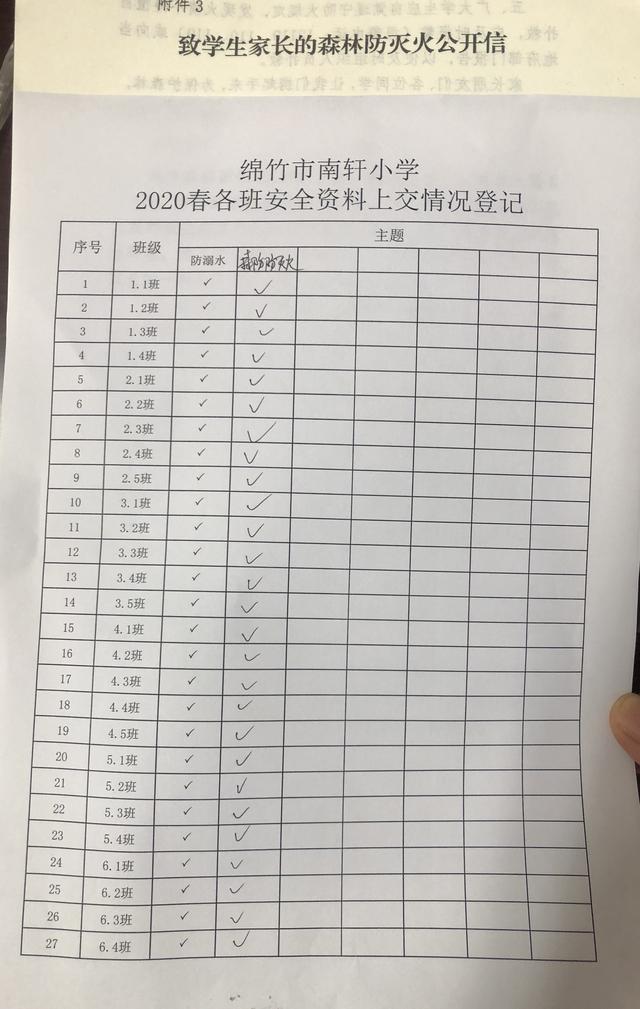 附件3
致学生家长的森林防灭火公开信
绵竹市南轩小学
2020春各班安全资料上交情况登记
序号 班级 主题
防溺水 森防防灭火
1 1.1班 ✓ ✓
2 1.2班 ✓ ✓
3 1.3班 ✓ ✓
4 1.4班 ✓ ✓
5 2.1班 ✓ ✓
6 2.2班 ✓ ✓
7 2.3班 ✓ ✓
8 2.4班 ✓ ✓
9 2.5班 ✓ ✓
10 3.1班 ✓ ✓
11 3.2班 ✓ ✓
12 3.3班 ✓ ✓
13 3.4班 ✓ ✓
14 3.5班 ✓ ✓
15 4.1班 ✓ ✓
16 4.2班 ✓ ✓
17 4.3班 ✓ ✓
18 4.4班 ✓ ✓
19 4.5班 ✓ ✓
20 5.1班 ✓ ✓
21 5.2班 ✓ ✓
22 5.3班 ✓ ✓
23 5.4班 ✓ ✓
24 6.1班 ✓ ✓
25 6.2班 ✓ ✓
26 6.3班 ✓ ✓
27 6.4班 ✓ ✓